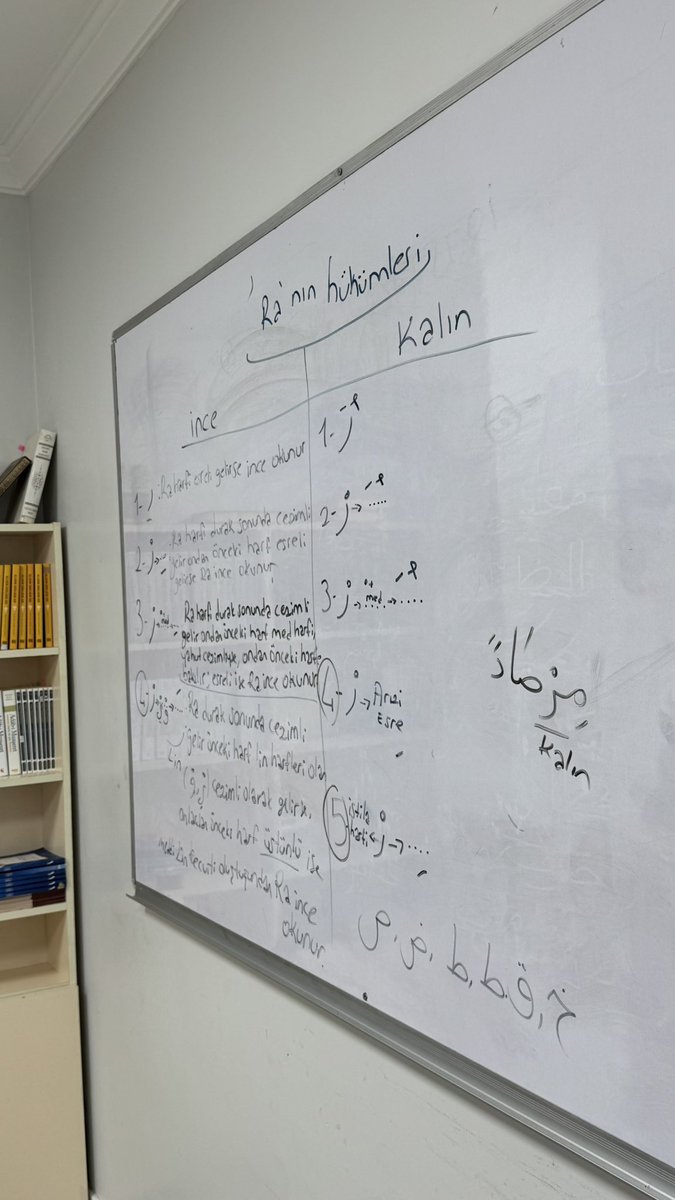 Ra'nın hükümleri
ince
1- ر : Ra harfi esreli gelirse ince okunur
2- رْ → Ra harfi durak sonunda cezimli
gelir ondan önceki harf esreli
gelirse Ra ince okunur
3- رْ Ra harfi durak sonunda cezimli
gelir ondan önceki harf med harfi,
yahut cezimliyse, ondan önceki harfin
esreli ise Ra ince okunur
4- رْ → Ra durak sonunda cezimli
gelir önceki harf lin harfleri olan
Lin (و, ي) cezimli olarak gelirse,
onlardan önceki harf üstünlü ise
Ra ince
okunur.
Kalın
1- ر
2- رْ → .....
3- رْ → med → .....
4- ر → Arızi
Esre
5 istila
harfi ← رْ → ....
مِرْصَادً
Kalın
خ, ق